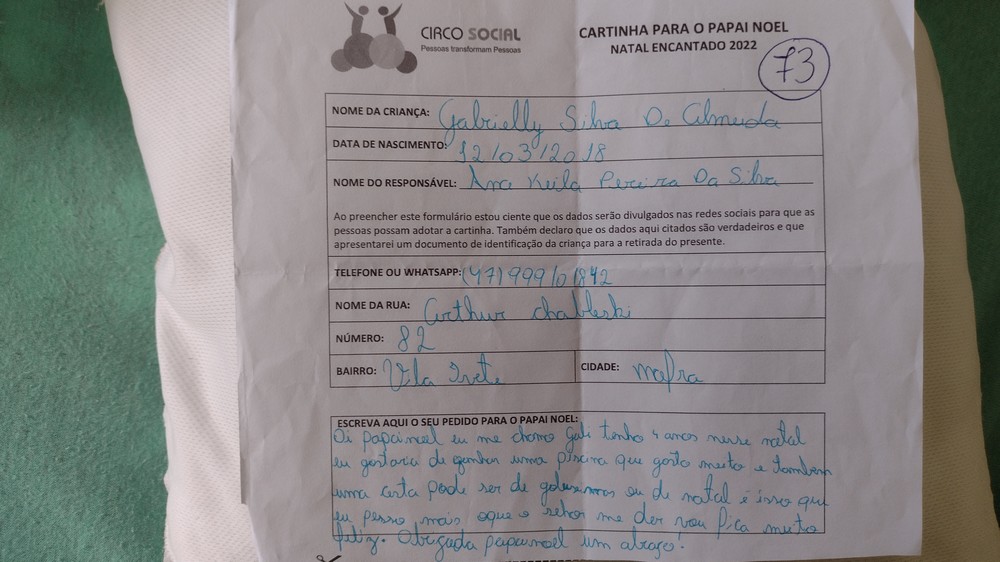 CIRCO SOCIAL
Pessoas transformam Pessoas
CARTINHA PARA O PAPAI NOEL
NATAL ENCANTADO 2022
73
NOME DA CRIANÇA: Gabrielly Silva De Almeida
DATA DE NASCIMENTO: 12/03/2018
NOME DO RESPONSÁVEL: Ana Keila Pereira Da Silva
Ao preencher este formulário estou ciente que os dados serão divulgados nas redes sociais para que as
pessoas possam adotar a cartinha. Também declaro que os dados aqui citados são verdadeiros e que
apresentarei um documento de identificação da criança para a retirada do presente.
TELEFONE OU WHATSAPP: (47) 999101842
NOME DA RUA: Arthur
NÚMERO: 82
BAIRRO: Vila Ivete CIDADE: mafra
ESCREVA AQUI O SEU PEDIDO PARA O PAPAI NOEL:
Oi papainoel eu me chamo Gabi tenho 4 anos nesse natal
eu gostaria de ganhar uma piscina que gosto muito e também
uma cesta pode ser de ou de natal é isso que
eu pesso mais oque o sehor me der vou fica muito
feliz. Obrigada papainoel um abraço.